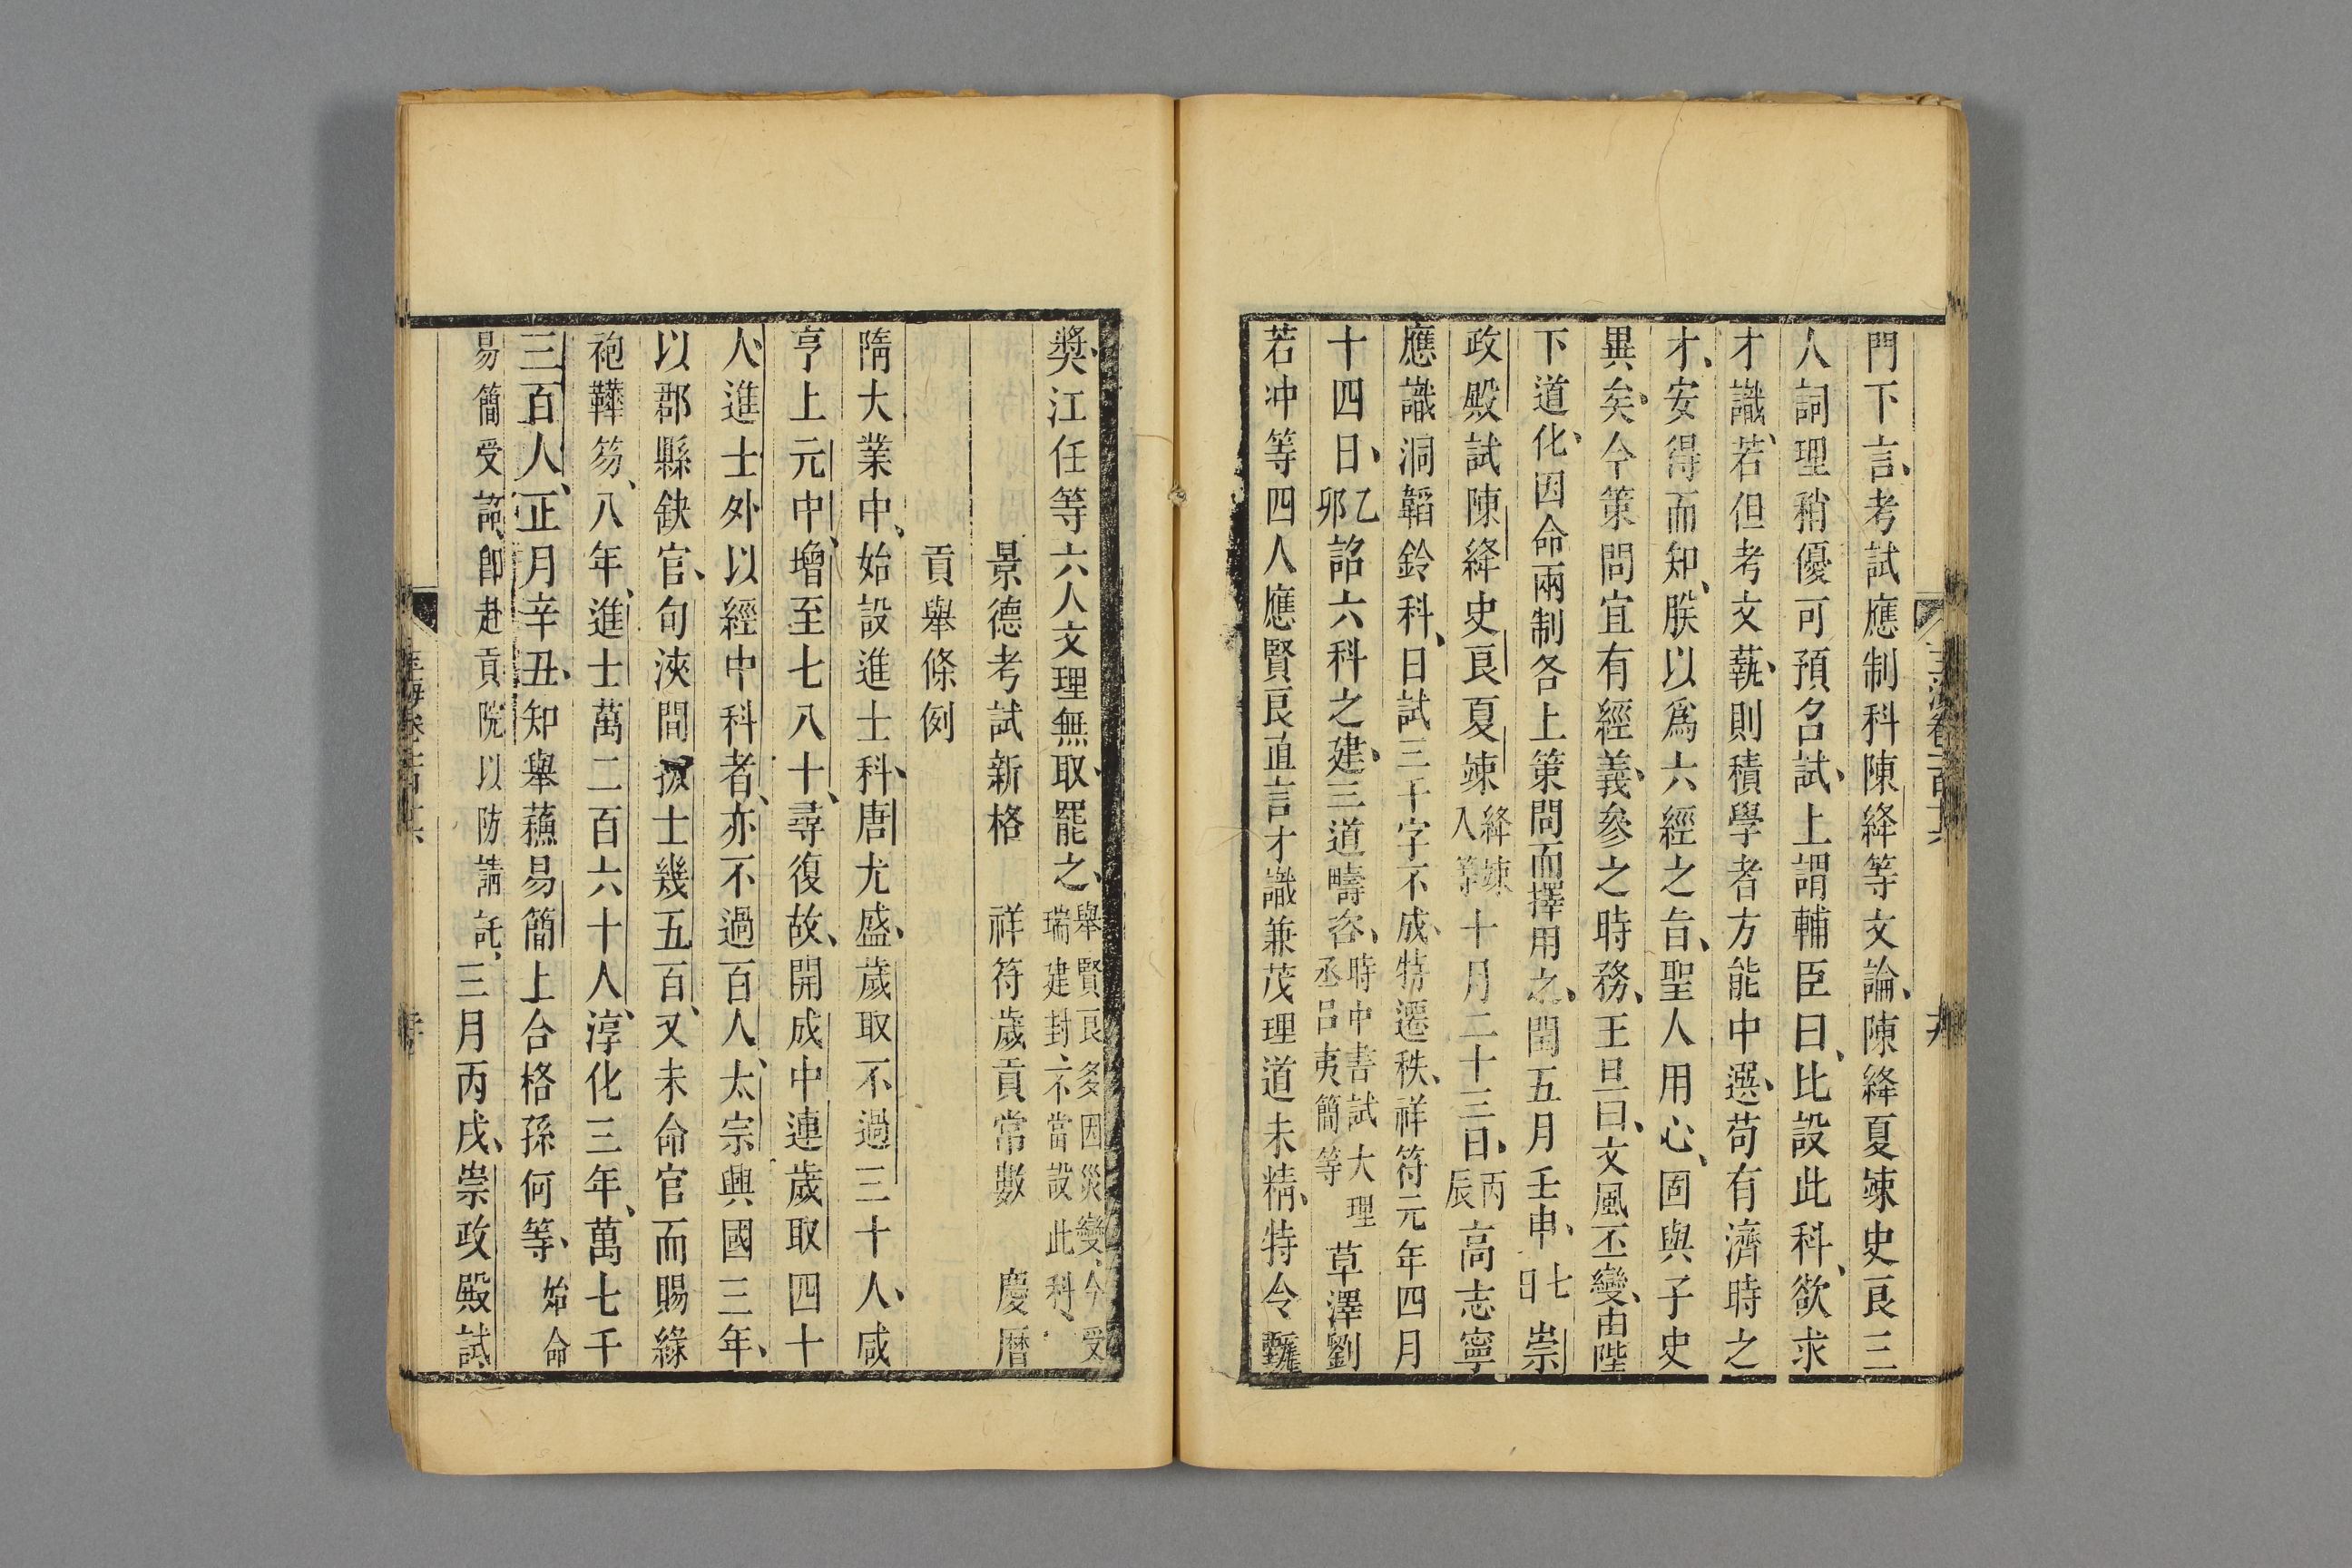 玉海卷一百十六
門下言考試應制科陳絳等文論陳絳夏竦史良三
人詞理稍優可預召試上謂輔臣曰比設此科欲求
才識若但考文蓺則積學者方能中選苟有濟時之
才安得而知朕以爲六經之旨聖人用心固與子史
異矣今策問宜有經義參之時務王旦曰文風丕變由陛
下道化因命兩制各上策問而擇用之閏五月壬申七日崇
政殿試陳絳史良夏竦絳竦入等十月二十三日丙辰高志寧
應識洞韜鈐科日試三千字不成特遷秩祥符元年四月
十四日乙卯詔六科之建三道疇咨時中書試大理丞呂夷簡等草澤劉
若冲等四人應賢良直言才識兼茂理道未精特令甄
奬江任等六人文理無取罷之舉賢良多因災變今受瑞建封不當設此科
景德考試新格　祥符歲貢常數　慶曆
貢舉條例
隋大業中始設進士科唐尤盛歲取不過三十人咸
亨上元中增至七八十尋復故開成中連歲取四十
人進士外以經中科者亦不過百人太宗興國三年
以郡縣缺官旬浹間拔士幾五百又未命官而賜綠
袍鞾笏八年進士萬二百六十人淳化三年萬七千
三百人正月辛丑知舉蘇易簡上合格孫何等始命
易簡受詔卽赴貢院以防請託三月丙戌崇政殿試